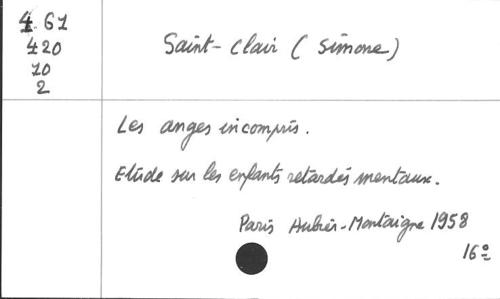 4.61
420
10
2
Saint-Clair (Simone)
Les anges incompris.
Etude sur les enfants retardés mentaux.
Paris Aubier-Montaigne 1958
16º